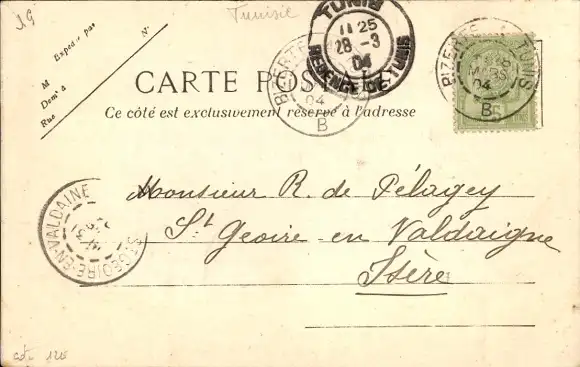 Tunisie
M
Expédié par
N°
Dem' à
Rue
CARTE POSTALE
Ce côté est exclusivement réservé à l'adresse
TUNIS
11 25
28 -3
04
REGENCE DE TUNIS
BIZERTE
04
B
BIZERTE TUNISIE
04
B
5
Monsieur R. de Pélagey
St Geoire-en Valdaigne
Isère
ST GEOIRE-EN-VALDAINE